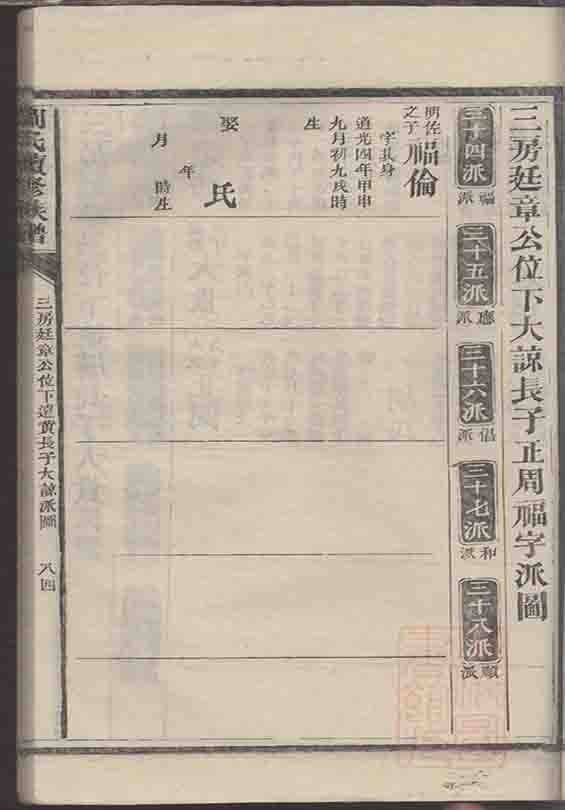 三房廷章公位下大諒長子正周福字派圖
三十四派
福派
三十五派
應派
三十六派
侶派
三十七派
和派
三十八派
順派
明佐之子
福倫
字其身
道光四年甲申
九月初九戌時
生
娶 氏
年
月 時生
氏續修族譜
三房廷章公位下 貴長子大諒派圖
八四